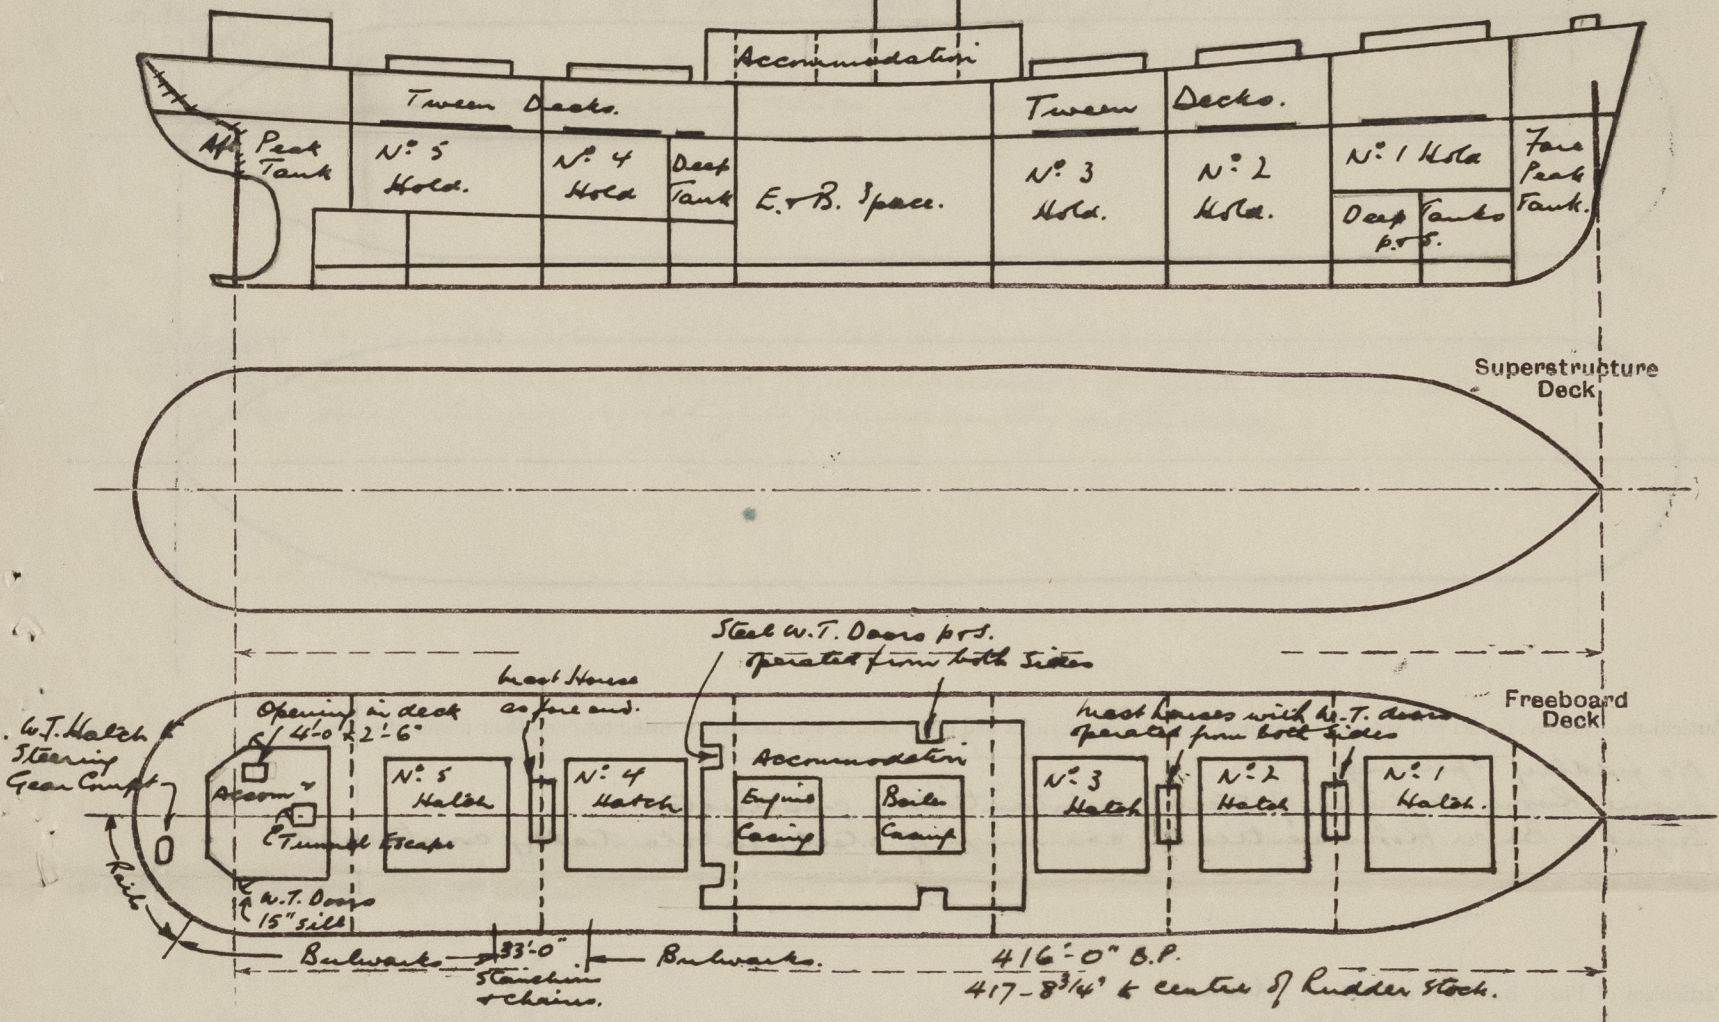 Accommodation
Tween Decks.
Tween Decks.
Aft Peak Tank
Nº 5
Hold.
Nº 4
Hold
Deep
Tank
E. & B. Space.
Nº 3
Hold.
Nº 2
Hold.
Nº 1 Hold
Deep Tanks
p. & S.
Fore
Peak
Tank.
Superstructure
Deck
Steel W.T. Doors p & S.
operated from both sides
Mast House
as fore end.
Freeboard
Deck
W.T. Hatch
Steering
Gear Compt
Opening in deck
4'-0 x 2'-6"
Mast houses with W.T. doors
operated from both sides
Accomn
Tunnel Escape
Nº 5
Hatch
Nº 4
Hatch
Accommodation
Engine
Casing
Boiler
Casing
Nº 3
Hatch
Nº 2
Hatch
Nº 1
Hatch.
Rails
W.T. Doors
15" sill
Bulwarks
33'-0"
Stanchions
& chains.
Bulwarks.
416'-0" B.P.
417-8 3/4" to centre of Rudder Stock.